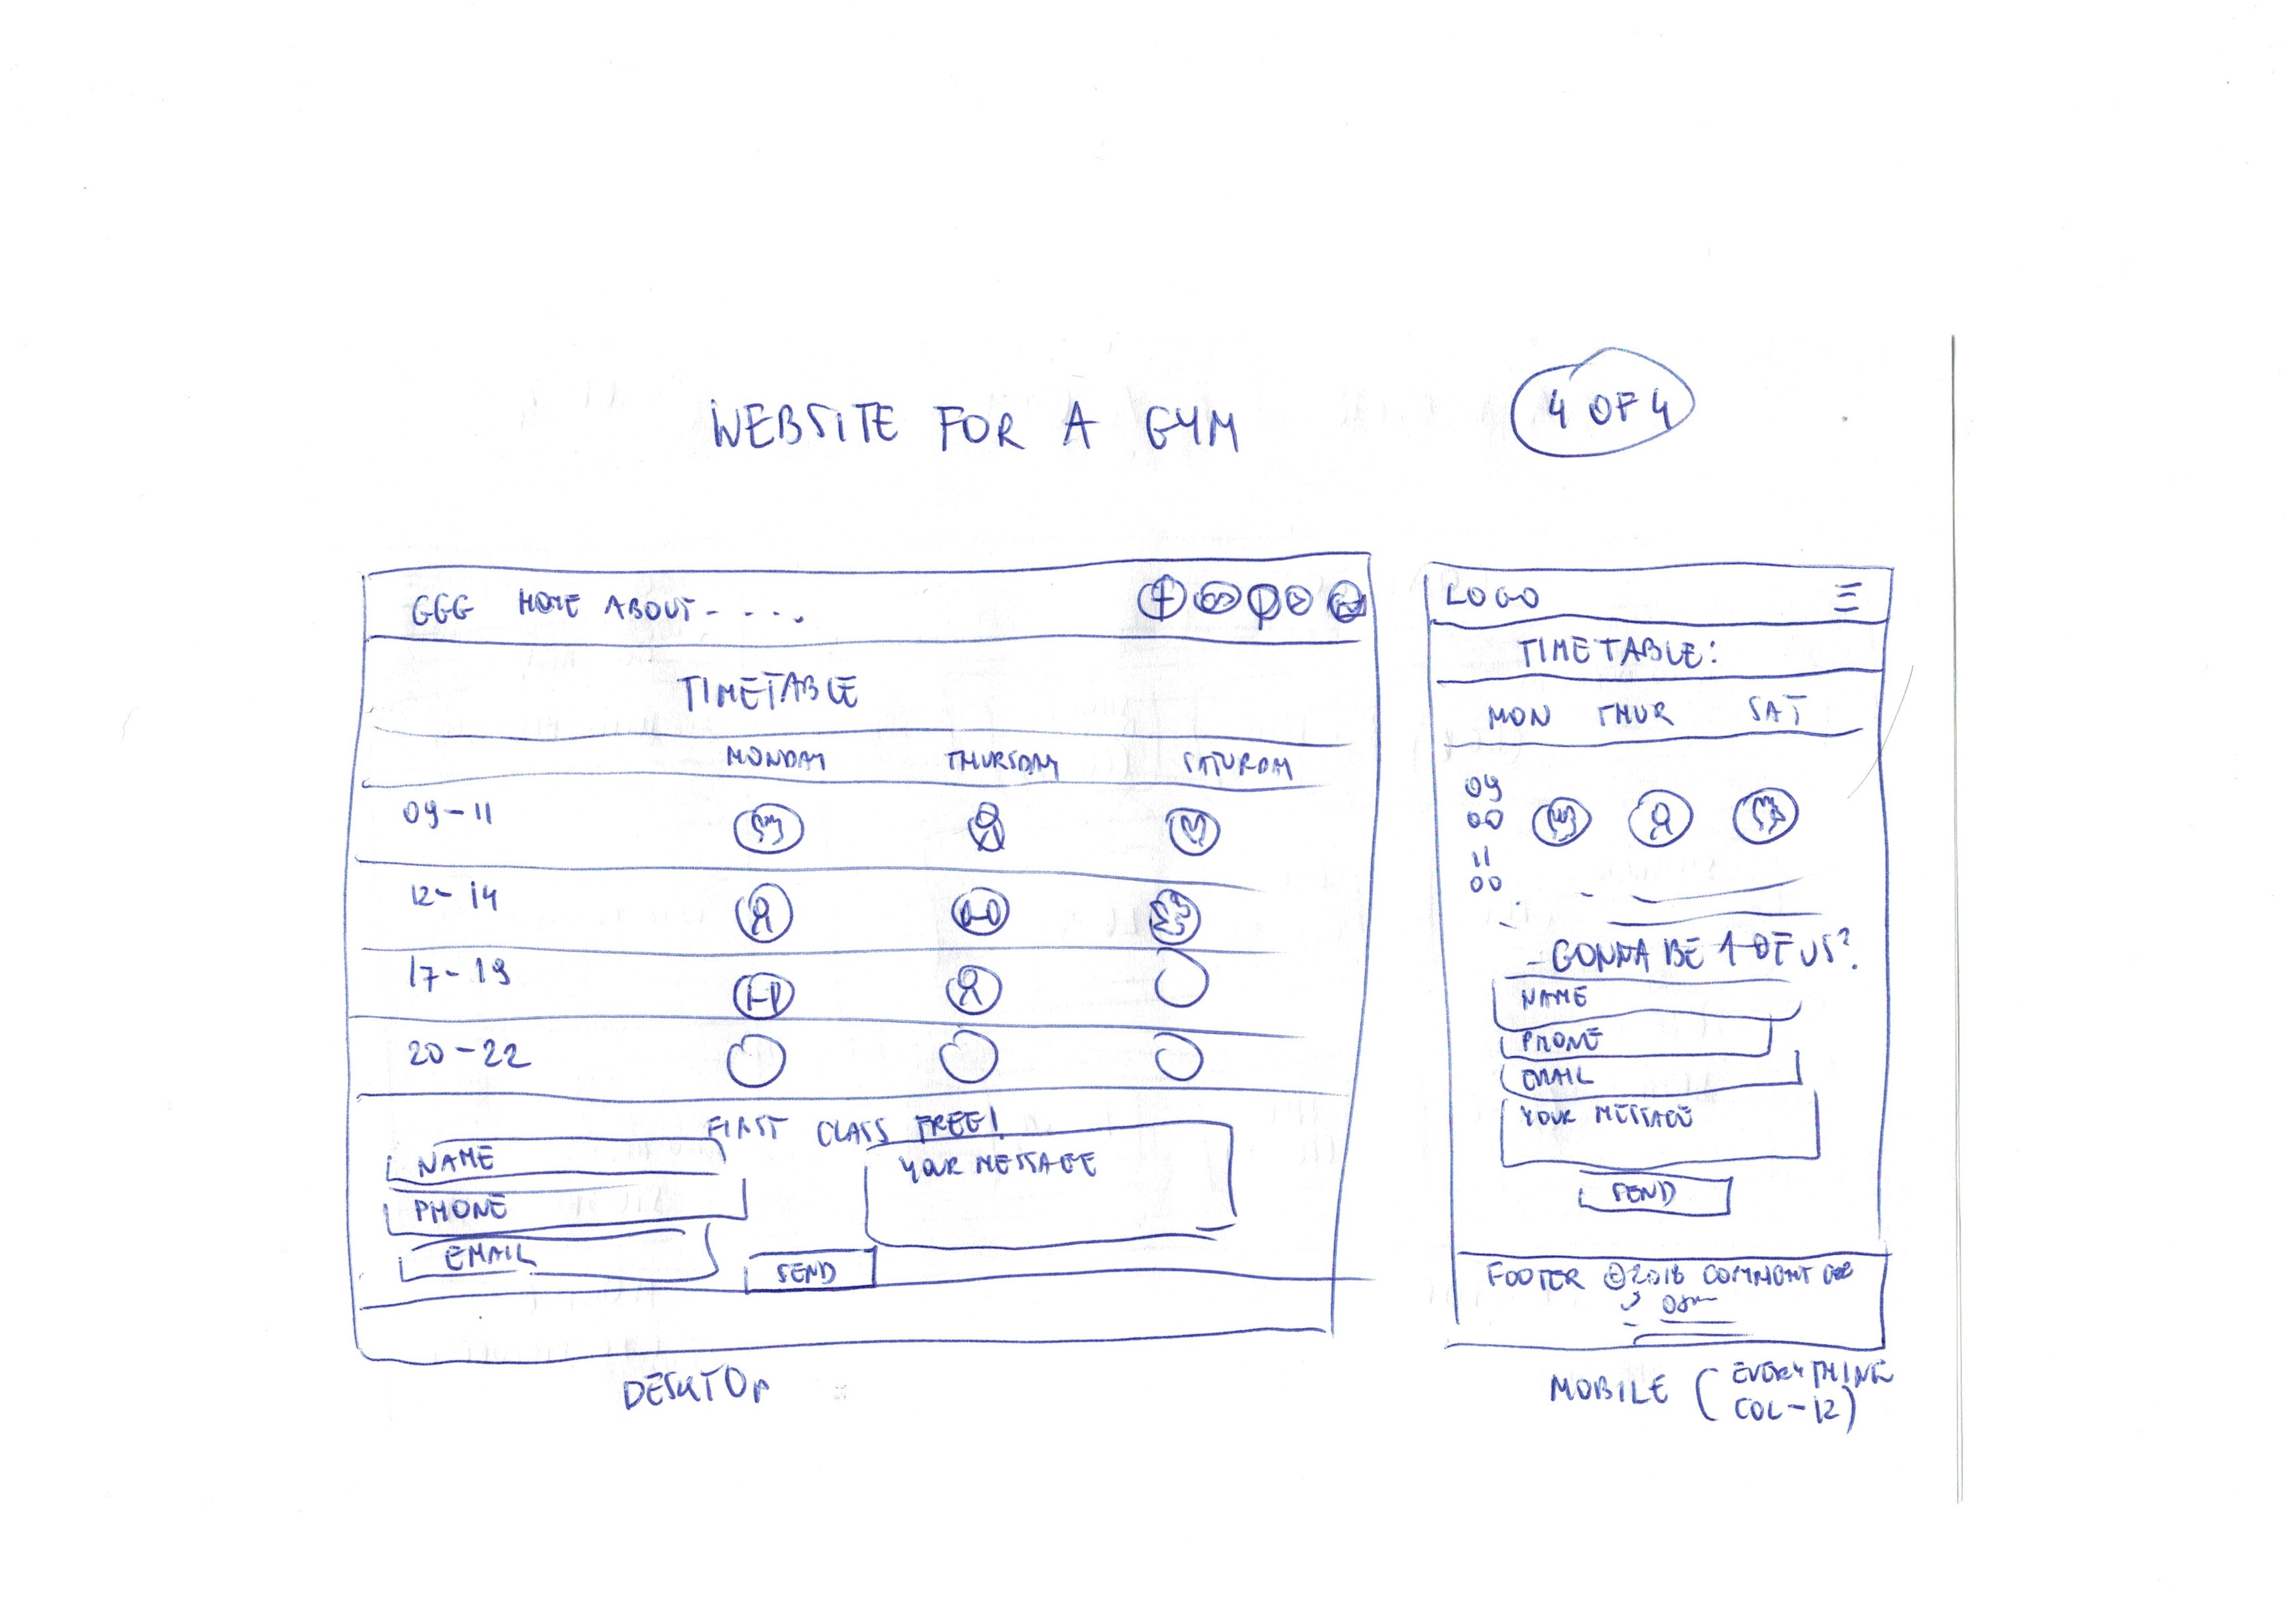 WEBSITE FOR A GYM
4 OF 4
GGG HOME ABOUT - . . . .
TIMETABLE
MONDAY THURSDAY SATURDAY
09-11
12-14
17-19
20-22
FIRST CLASS FREE!
NAME
YOUR MESSAGE
PHONE
EMAIL
SEND
DESKTOP
LOGO
TIMETABLE:
MON THUR SAT
09
00
11
00
GONNA BE 1 OF US?
NAME
PHONE
EMAIL
YOUR MESSAGE
SEND
FOOTER ©2018
MOBILE (EVERYTHING
COL-12)